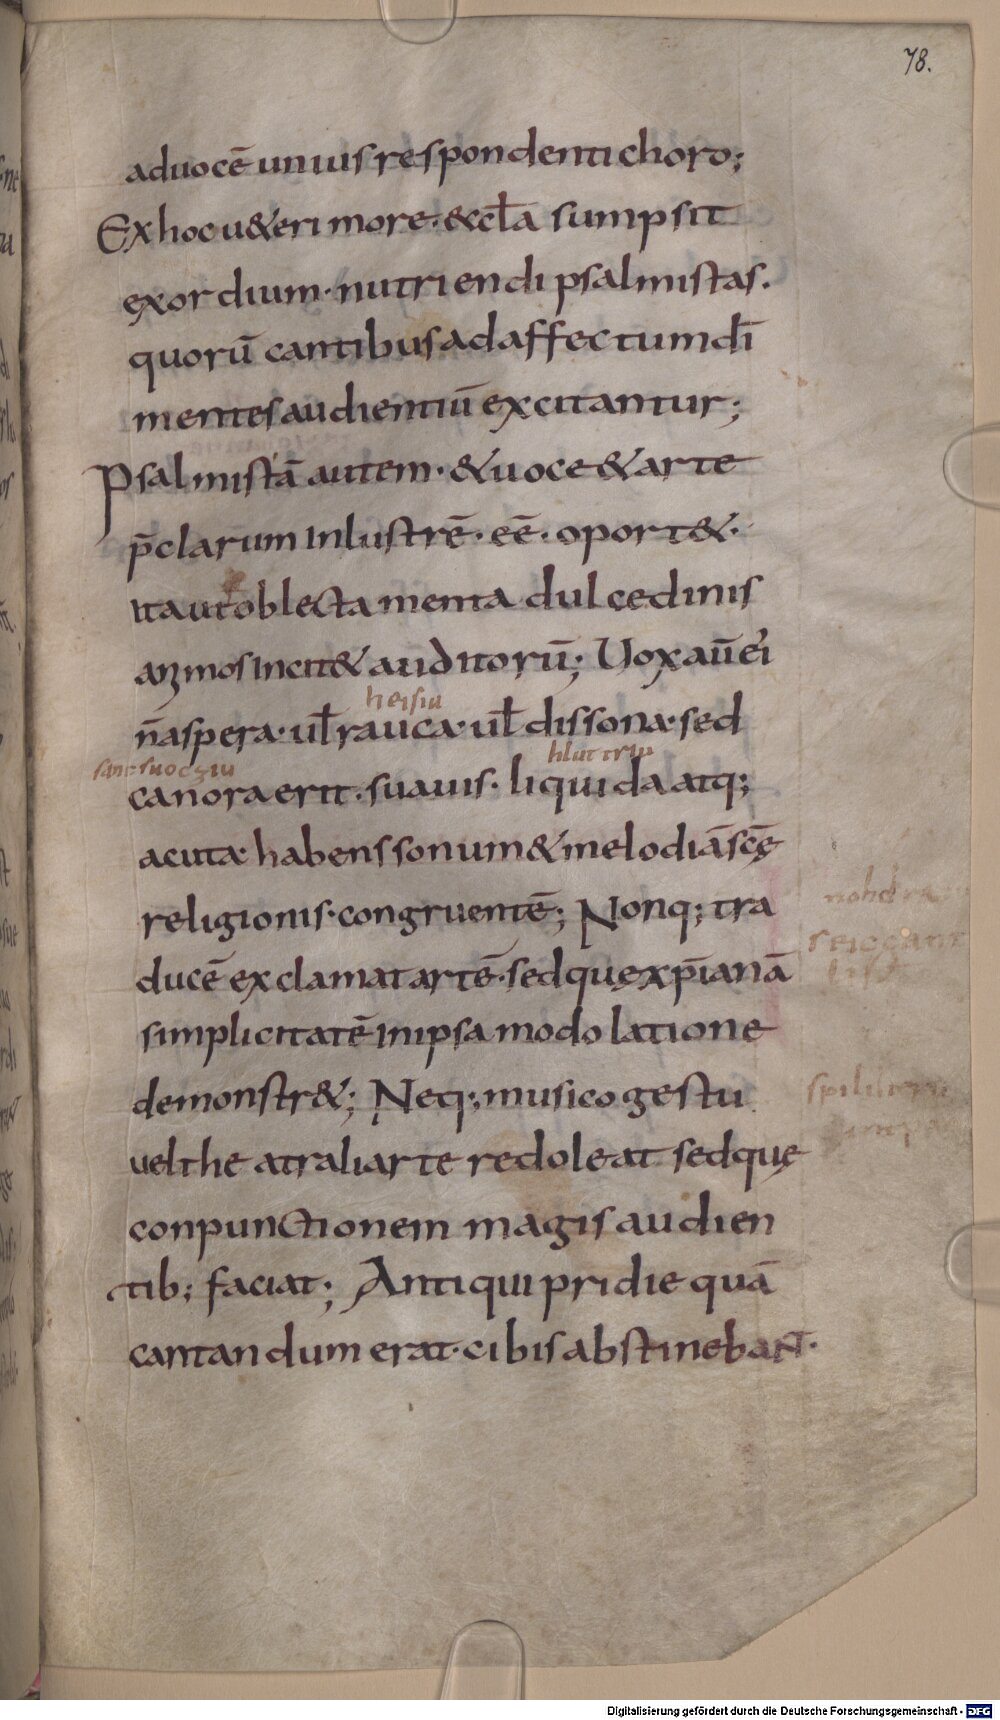 78.
aduocē unius respondenti choro;
Ex hoc u&eri more · & ecl̄a sumpsit
exordium · nutriendi psalmistas.
quorū cantibus ad affectum dī
mentes audientiū excitantur;
Psalmistā autem · & uoce & arte
p̄clarum Inlustrē · eē · oport& ·
ita ut oblectamenta dulcedinis
animos Incit& auditorū; Uox aūei
n̄ aspera · ul̄ rauca · ul̄ dissona · sed
heisiu
hluttriu
canora erit · suauis · liquida atq;
acuta · habens sonum & melodiā scę
religionis · congruentē; Nonq; tra
ducē exclamat artē · sed quę xp̄ianā
simplicitatē In ipsa modolatione
demonstr&; Neq; musico gestu
uel theatrali arte redoleat sed quę
conpunctionem magis audien
tib; faciat; Antiqui pridie quā
cantandum erat · cibis abstinebant ·
Digitalisierung gefördert durch die Deutsche Forschungsgemeinschaft - DFG